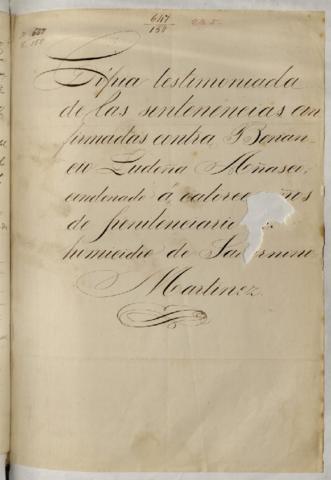 647
150
Copia testimoniada
de las sentencias con
firmadas contra Benan-
cio Ludeña
condenado á catorce años
de penitenciaria
homicidio de Saturnino
Martinez.